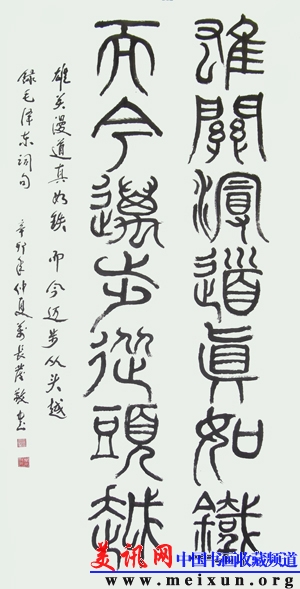 雄關漫道真如鐵
而今邁步從頭越
雄关漫道真如铁 而今迈步从头越
録毛泽东词句
辛卯年仲夏
美讯网 中国书画收藏频道
www.meixun.org